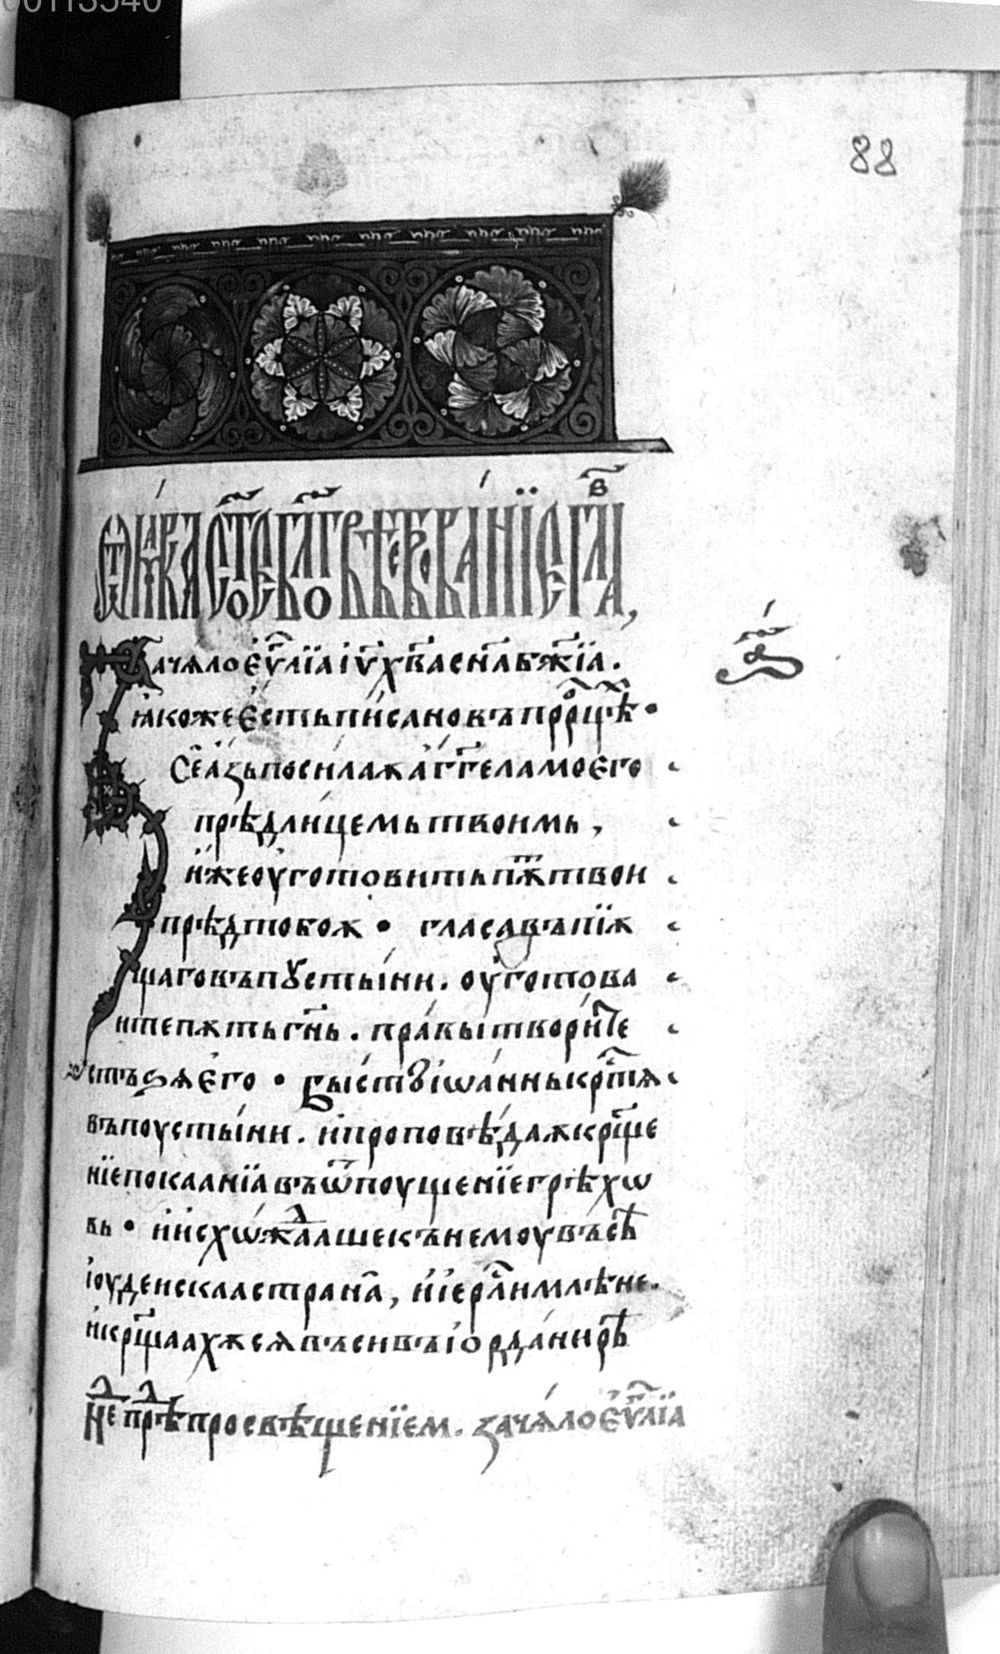 00113540
88
ѿ мѡрка ст҃ое еѵⷢ҇лїе
Зачѧло еѵ҃лїа і҃ѵ х҃ва сн҃а бж҃їа.
ꙗкоже естъ писано въ прⷪ҇рц҃ѣ •
Се азъ посилаѫ аг҃гела моего
прѣд лицемь твоимь,
иже оуготовитъ пѫт҃ твои
прѣд тобоѫ • гласа въпїѫ
щаго въ пꙋстыни. оуготова
ите пѫть гн҃ь. правы творит҃е
стъѕѧ его • Бысть іѡаннь крⷭ҇тѧ
въ поустыни. и проповѣдаѫ крⷭ҇ще
нїе покаанїа въ ѿпоущенїе грѣхѡ
вь • и исхѡжⷣааше къ немоу въсѣ
іоудеискаа страна҃, и іерⷭ҇лимлѣне.
и крⷭ҇щаахѫ сѧ въси въ іордани рѣ
Неⷣ прⷣѣ просвѣщенїем. зачѧло еѵ҃лїа